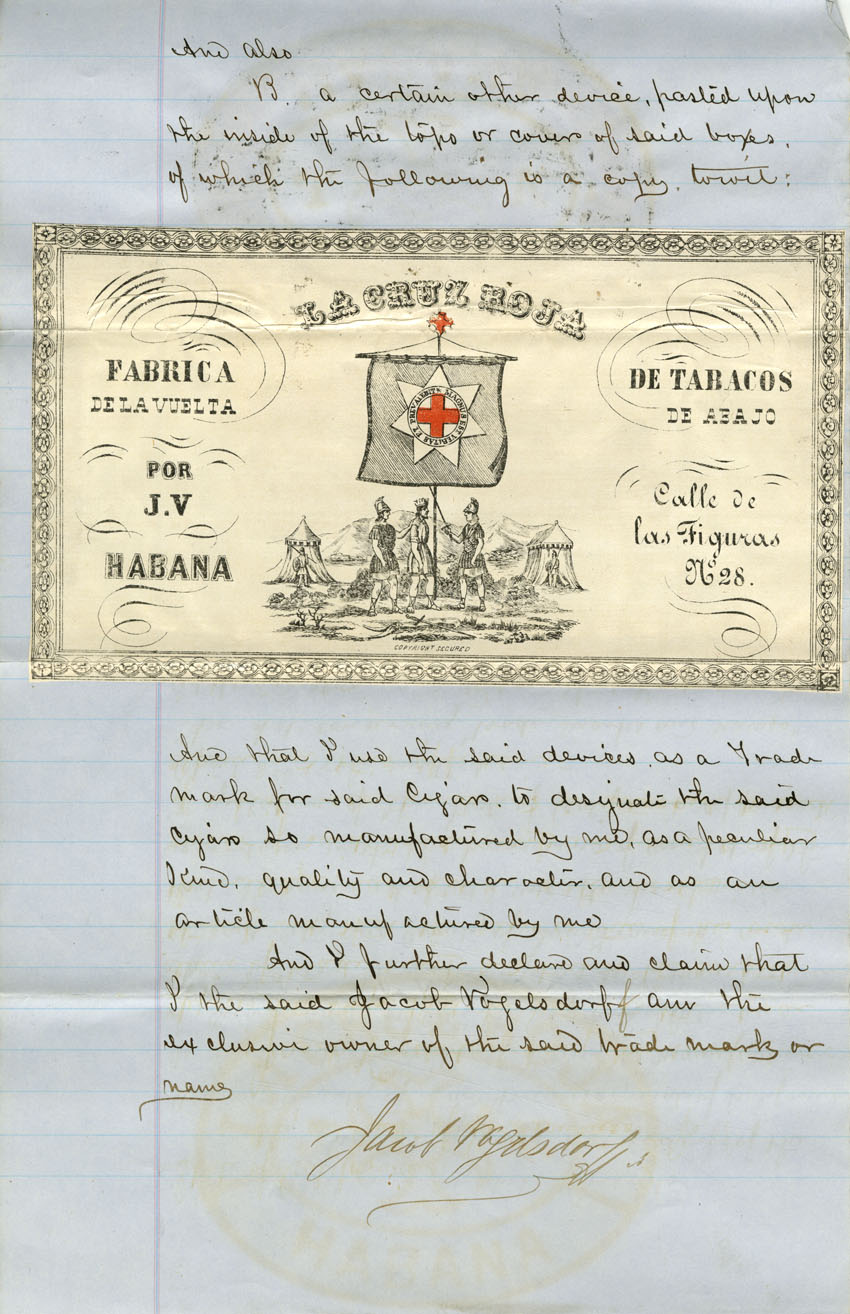 And also
B. a certain other device, pasted upon
the inside of the tops or cover of said boxes,
of which the following is a copy, towit:
LA CRUZ ROJA
FABRICA
DE LA VUELTA
POR
J.V
HABANA
MAGNUS EST VERITAS ET PREVALEBIT
DE TABACOS
DE ABAJO
Calle de
las Figuras
Nº 28.
COPYRIGHT SECURED
And that I use the said devices, as a Trade
mark for said Cigars, to designate the said
Cigars so manufactured by me, as a peculiar
Kind, quality and character, and as an
article manufactured by me
And I further declare and claim that
I the said Jacob Vogelsdorff am the
exclusive owner of the said trade mark or
name
Jacob Vogelsdorff